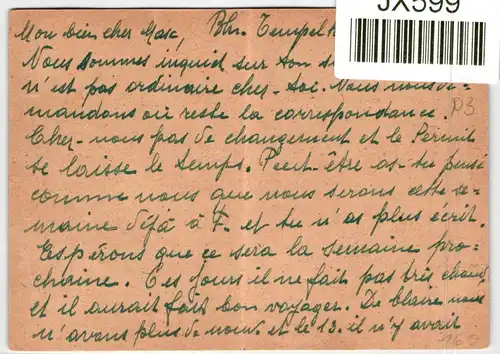 JX599
Mon bien cher Max, Bln. Tempelh
Nous sommes inquiet sur ton s
n'est pas ordinaire cher-toi. Nous nous de-
mandons où reste la correspondance.
P3
Cher-nous pas de changement et le Permit
se laisse le temps. Peut-être as-tu pensé
comme nous que nous serons cette se-
maine déjà à F. et tu n'as plus écrit.
Espérons que ce sera la semaine pro-
chaine. Ces jours il ne fait pas très chaud
et il aurait fait bon voyager. De Claire nous
n'avons plus de nouv. et le 13. il n'y avait